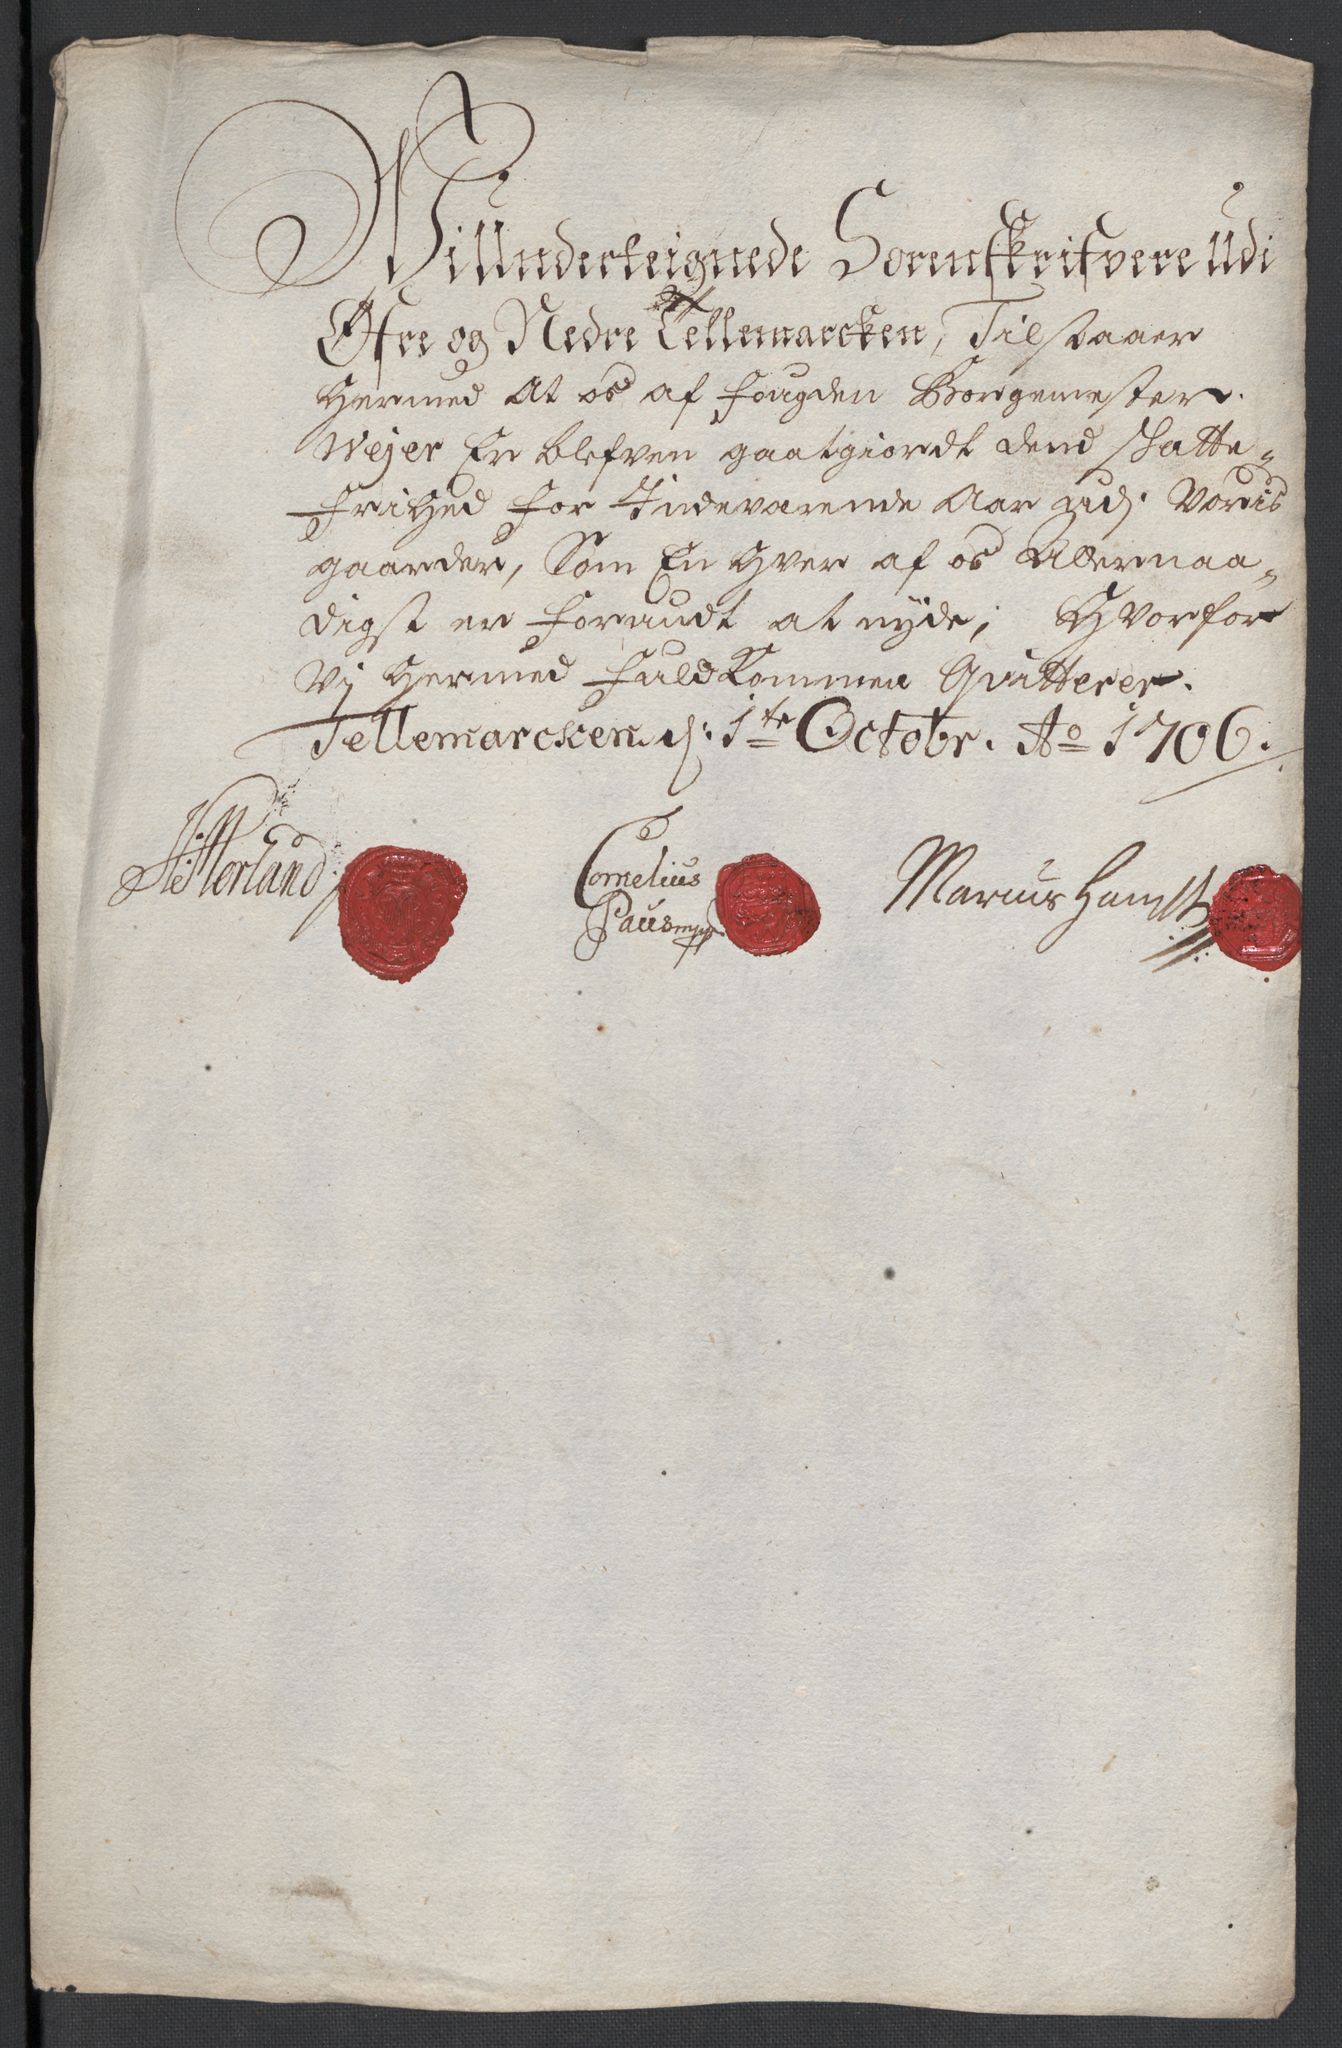 Wi Underteignede Sorenskrifvere Udi
Øfre og Nedre Tellemarcken, Tilstaaer
hermed at os af fougden Borgemester
Wejer Er blefven gaatgiordt dend skatte-
frihed for Indeværende Aar udj Voris
gaarder, Som En hver af os Allernaa-
digst er forundt at nyde; Hvorfor
Vj hermed fuldkommen Qvitterer.
Tellemarcken d: 1te Octobr. Ao 1706.
Cornelius
Paus mpp
Marius Hamst